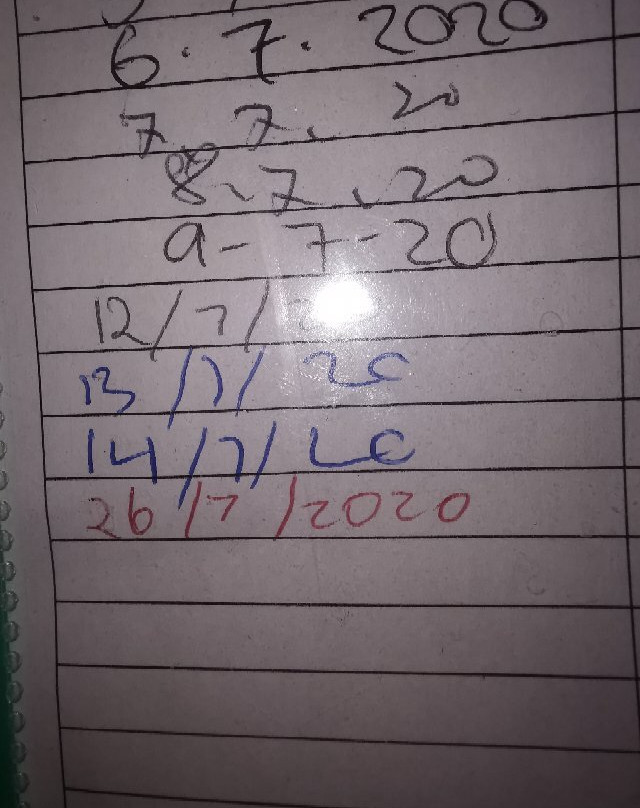 6.7.2020
7.7.20
8.7.20
9-7-20
12/7/
13/7/20
14/7/20
26/7/2020